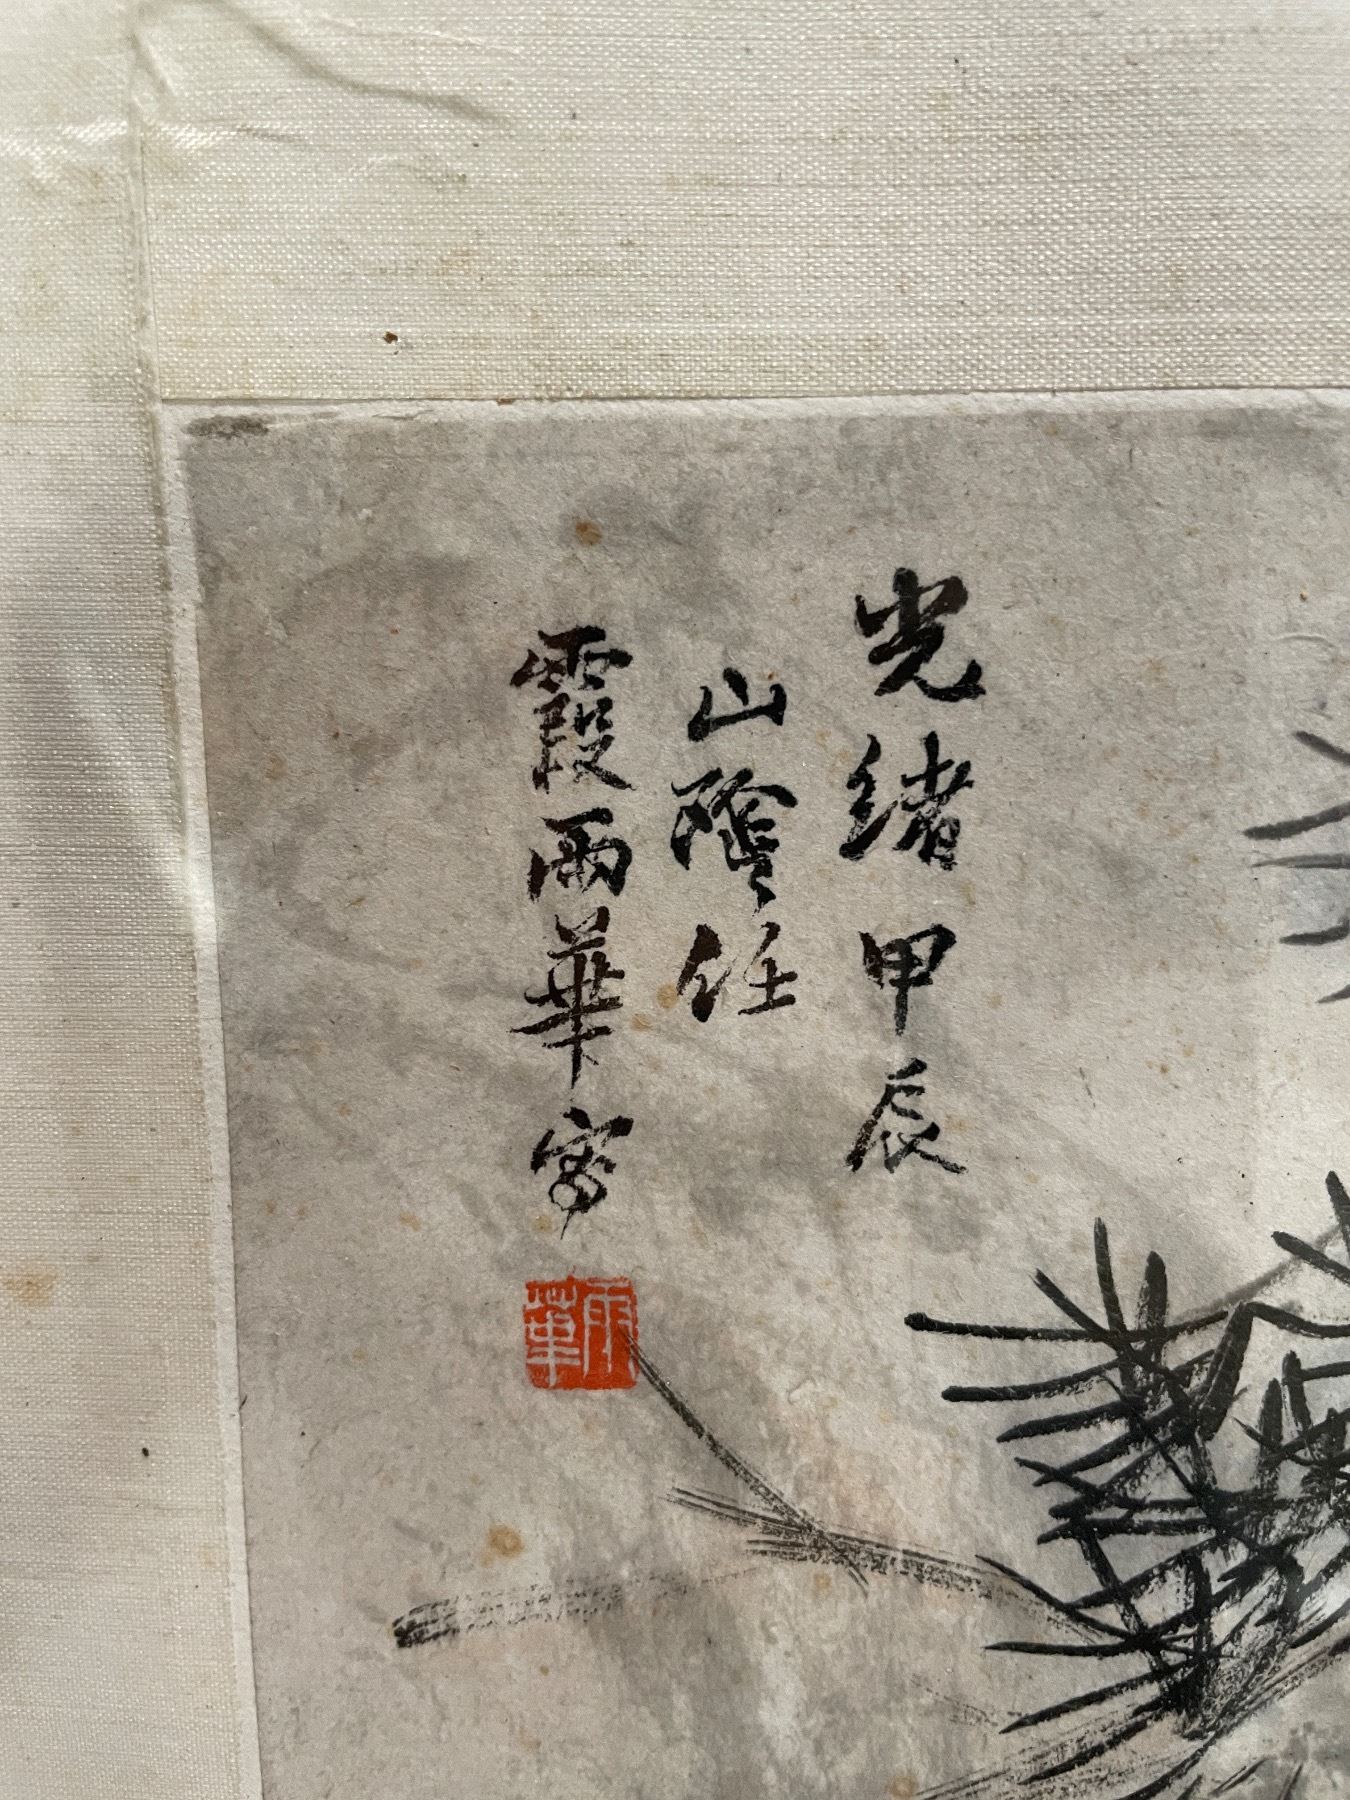 光緒甲辰
山陰任
霞雨華寫
雨華